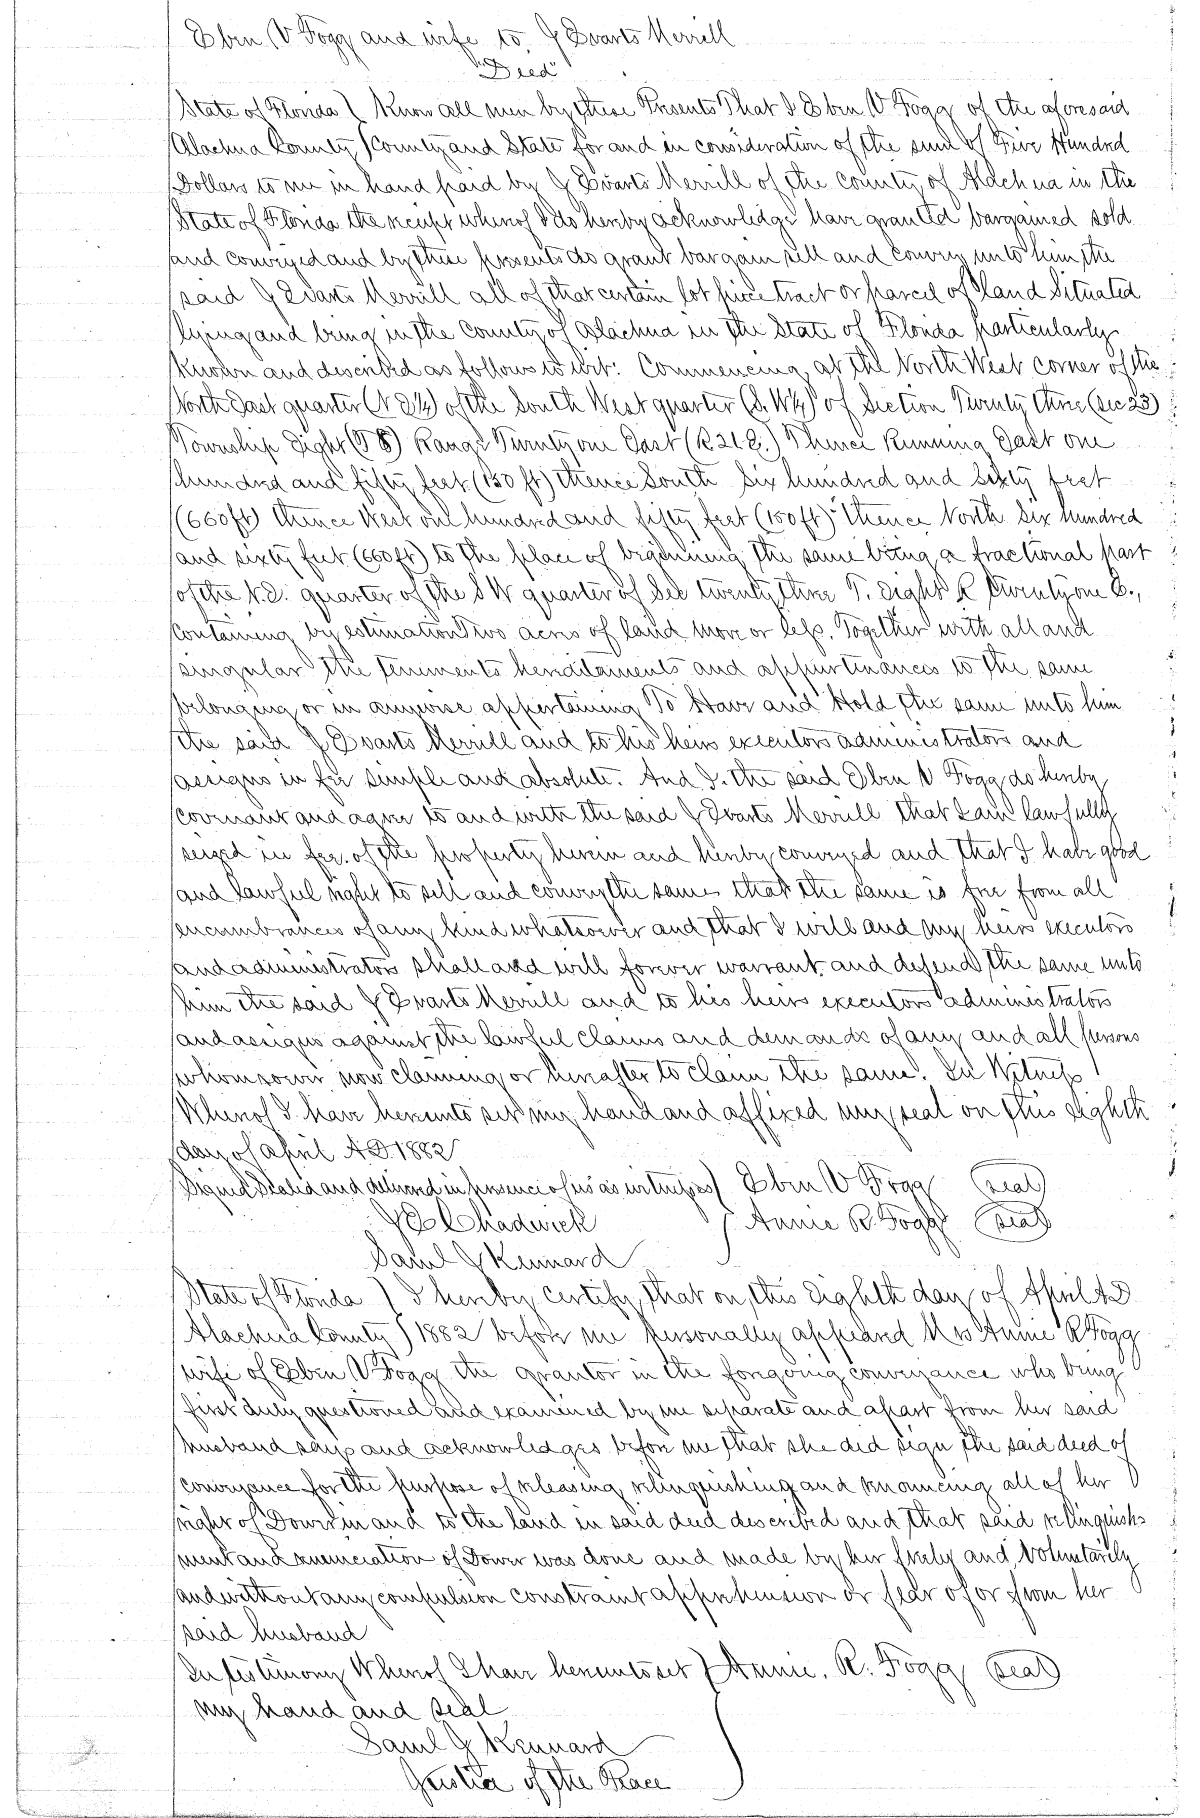 Eben V Fogg and wife to J Evarts Merrill
"Deed"
State of Florida } Know all men by these Presents That I Eben V Fogg of the aforesaid
Alachua County } County and State for and in consideration of the sum of Five Hundred
Dollars to me in hand paid by J Evarts Merrill of the county of Alachua in the
State of Florida the receipt whereof I do hereby acknowledge have granted bargained sold
and conveyed and by these presents do grant bargain sell and convey unto him the
said J Evarts Merrill all of that certain lot piece tract or parcel of land Situated
lying and being in the County of Alachua in the State of Florida particularly
Known and described as follows to wit: Commencing at the North West corner of the
North East quarter (N E ¼) of the South West quarter (S. W ¼) of Section Twenty three (sec 23)
Township Eight (T 8) Range Twenty one East (R 21 E.) Thence Running East one
hundred and fifty feet (150 ft) thence South Six hundred and Sixty feet
(660 ft) thence West one hundred and fifty feet (150 ft) thence North Six hundred
and sixty feet (660 ft) to the place of beginning the same being a fractional part
of the N. E. quarter of the S W quarter of Sec twenty three T. Eight R twenty one E.,
containing by estimation Two acres of land more or less. Together with all and
singular the tenements hereditaments and appurtinances to the same
belonging or in anywise appertaining To Have and Hold the same unto him
the said J Evarts Merrill and to his heirs executors administrators and
assigns in fee simple and absolute. And I. the said Eben V Fogg do hereby
covenant and agree to and with the said J Evarts Merrill that I am lawfully
seized in fee. of the property herein and hereby conveyed and that I have good
and lawful right to sell and convey the same that the same is free from all
encumbrances of any kind whatsoever and that I will and my heirs executors
and administrators shall and will forever warrant and defend the same unto
him the said J Evarts Merrill and to his heirs executors administrators
and assigns against the lawful claims and demands of any and all persons
whomsoever now claiming or hereafter to claim the same. In Witness
Whereof I have hereunto set my hand and affixed my seal on this eighth
day of April A D. 1882
Signed Sealed and delivered in presence of us as witnesses } Eben V Fogg (seal)
J E Chadwick } Annie R. Fogg (seal)
Saml J Kennard
State of Florida } I hereby certify that on this Eighth day of April A D
Alachua County } 1882 before me personally appeared Mrs Annie R Fogg
wife of Eben V Fogg the grantor in the foregoing conveyance who being
first duly questioned and examined by me separate and apart from her said
husband says and acknowledges before me that she did sign the said deed of
conveyance for the purpose of releasing relinquishing and renouncing all of her
right of Dower in and to the land in said deed described and that said relinquish-
ment and renunciation of Dower was done and made by her freely and Voluntarily
and without any compulsion constraint apprehension or fear of or from her
said husband
In testimony Whereof I have hereunto set } Annie. R. Fogg (seal)
my hand and seal
Saml J Kennard
Justice of the Peace